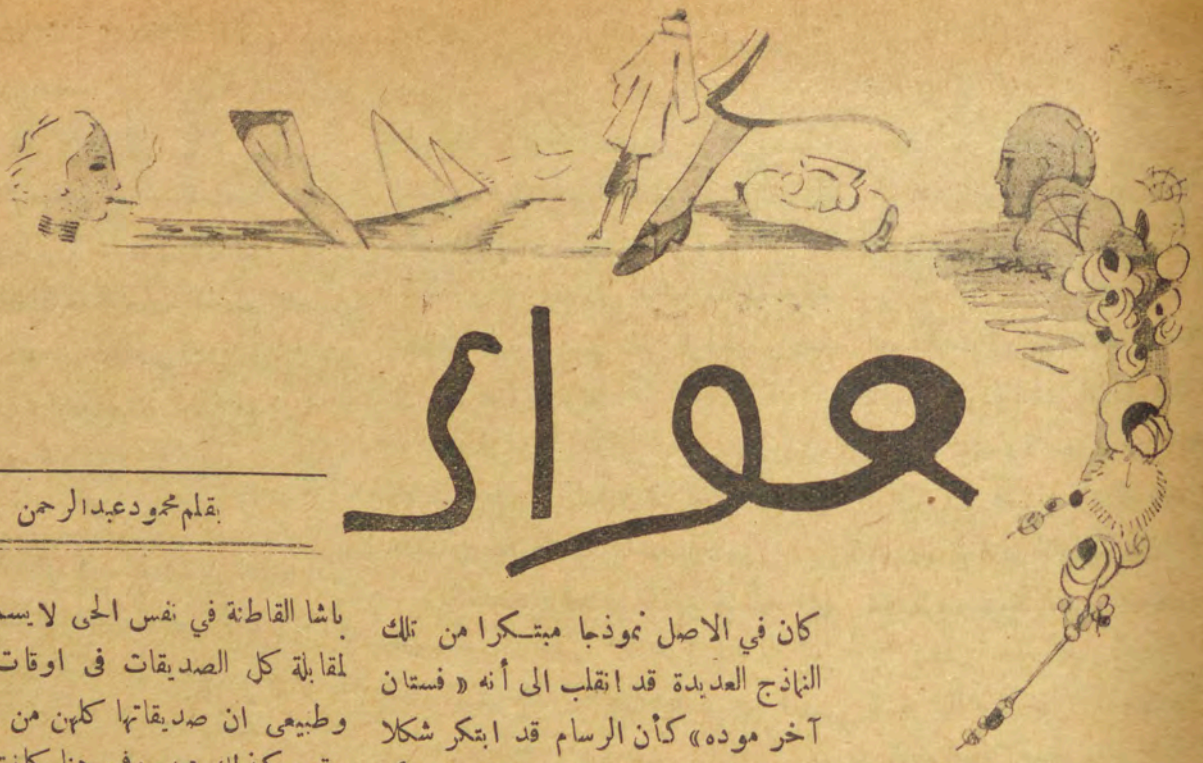 هوائ
بقلم محمود عبد الرحمن
كان في الاصل نموذجا مبتكرا من تلك
النماذج العديدة قد انقلب الى أنه « فستان
آخر موده» كأن الرسام قد ابتكر شكلا
باشا القاطنة في نفس الحى لا يسم
لمقابلة كل الصديقات فى اوقات
وطبيعى ان صديقاتها كلهن من